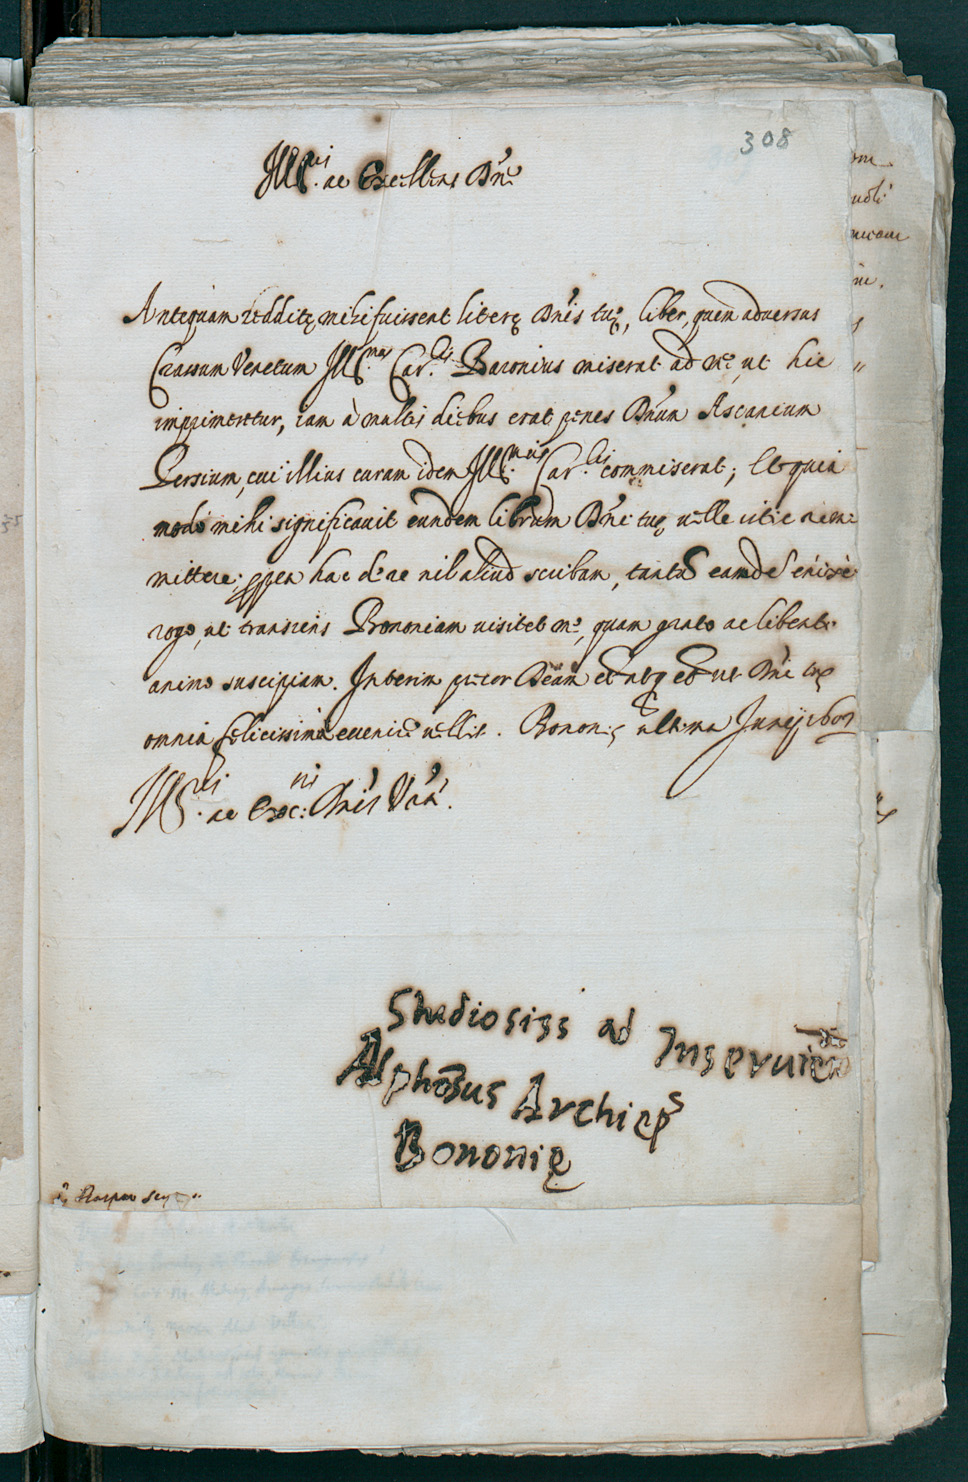 308
Ill.ris ac Excellens Dn̄e
Antequam redditę mihi fuissent literę Dn̄is tuę, liber, quem adversus
Crassum Venetum Ill.mus Car.lis Baronius miserat ad me, ut hic
imprimeretur, iam à multis diebus erat penes Dn̄um Ascanium
Persium, cui illius curam idem Ill.mus Car.lis commiserat; Et quia
modo mihi significavit eundem librum Dn̄i tuę velle
mittere; hac de re nil aliud scribam, tantū eamdē enixè
rogo, ut transiens Bononiam visitet me, quam grato ac libenti
animo suscipiam. Interim precor Deum ut Dn̄i tuę
omnia felicissimè evenire velit. Bononię ultima Junij 1607
Ill.ris ac Exc: Dn̄is Vrę
Studiosiss ad Inserviēdū
Alphōsus Archieps
Bononię
Gaspar